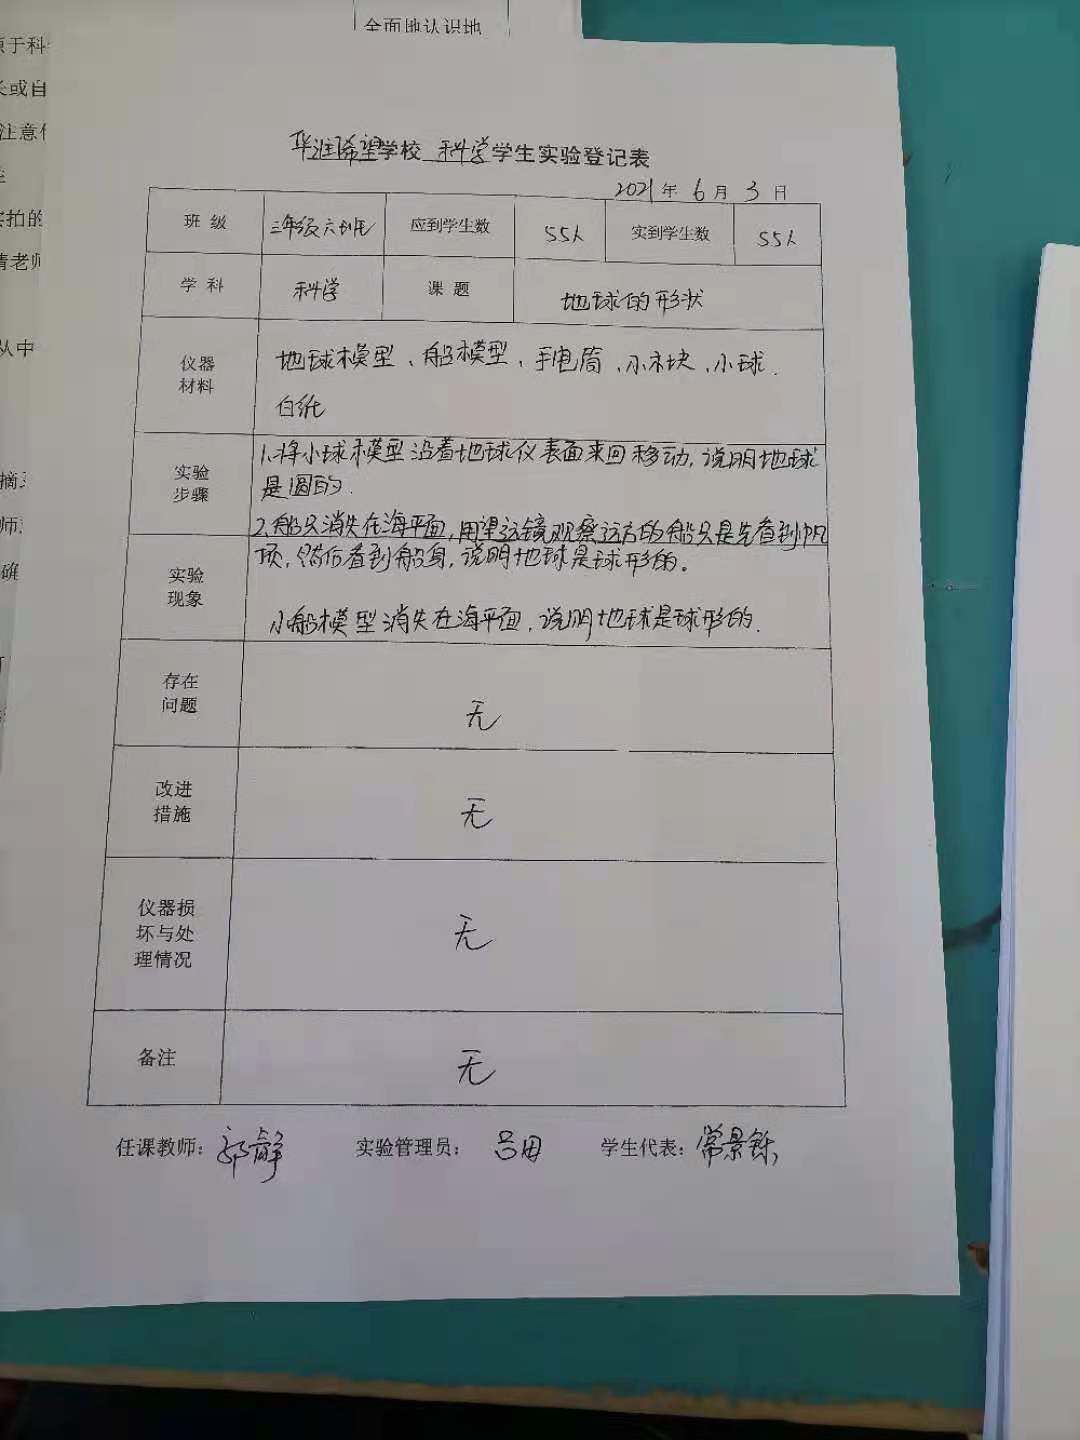 全面地认识地
原于科
长或自
注意
实拍的
请老师
从中
摘
师
确
华润希望学校 科学学生实验登记表
2021年 6月 3日
班级 三年级六班 应到学生数 55人 实到学生数 55人
学科 科学 课题 地球的形状
仪器
材料
地球模型、船模型、手电筒、小木块、小球.
白纸
实验
步骤
1.将小球木模型沿着地球仪表面来回移动,说明地球
是圆的.
2.船只消失在海平面,用望远镜观察远方的船只是先看到帆
实验
现象
顶,然后看到船身,说明地球是球形的。
小船模型消失在海平面,说明地球是球形的.
存在
问题
无
改进
措施
无
仪器损
坏与处
理情况
无
备注
无
任课教师:郭静 实验管理员: 吕田 学生代表:常景铄